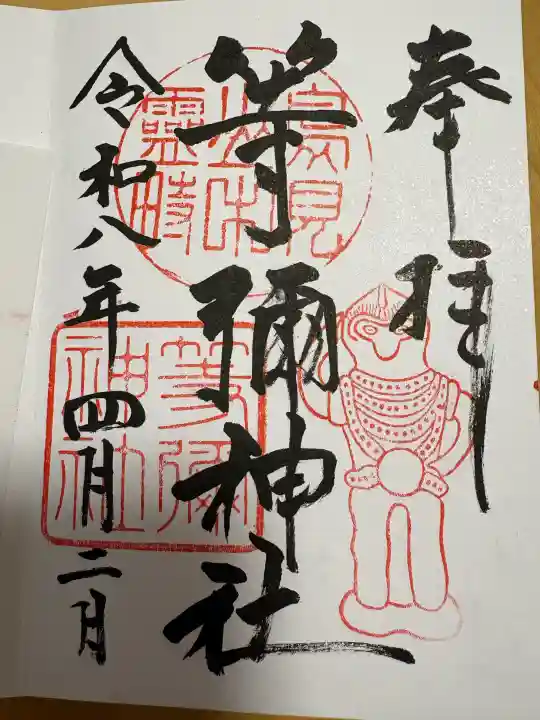 奉拝
等彌神社
令和八年四月二日
鳥見山中霊畤
等彌神社